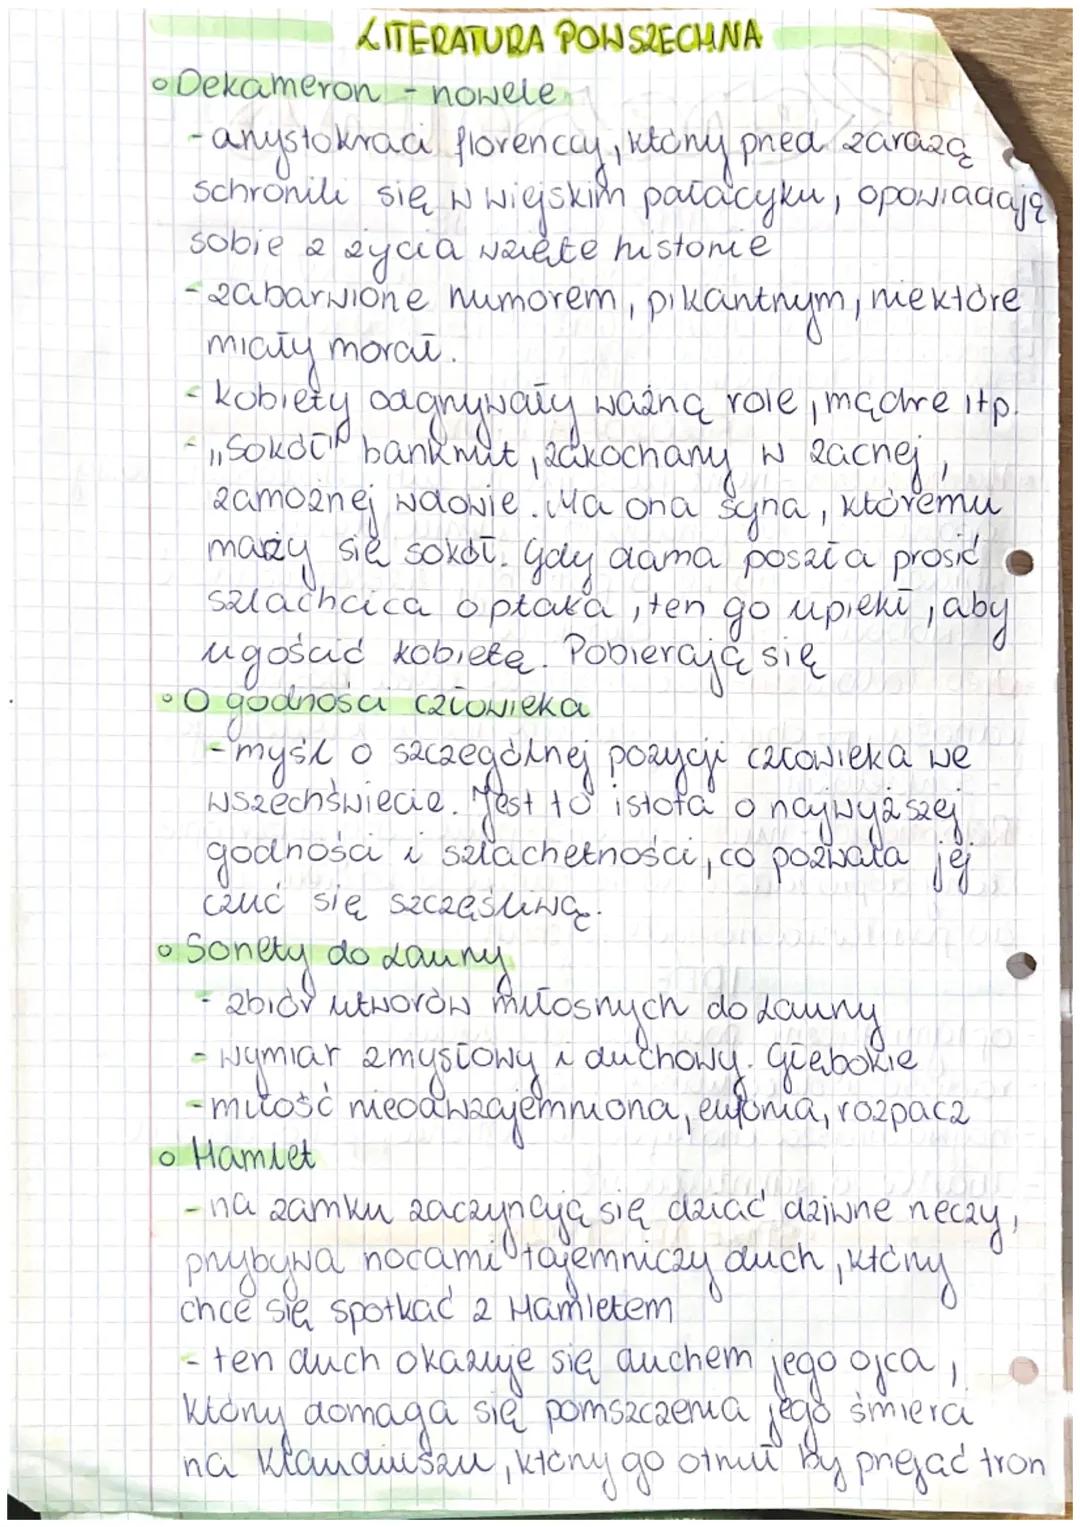 LITERATURA POWSZECHNA
◦ Dekameron - nowele
- arystokraci florenccy, którzy przed zarazą
schronili się w wiejskim pałacyku, opowiadają
sobie z życia wzięte historie
- zabarwione humorem, pikantnym, niektóre
miały morał.
- kobiety odgrywały ważną role, mądre itp.
- „Sokół" bankrut, zakochany w zacnej,
zamożnej wdowie. Ma ona syna, któremu
marzy się sokół. Gdy dama poszła prosić
szlachcica o ptaka, ten go upiekł, aby
ugościć kobietę. Pobierają się
◦ O godności człowieka
- myśl o szczególnej pozycji człowieka we
wszechświecie. Jest to istota o najwyższej
godności i szlachetności, co pozwala jej
czuć się szczęśliwą.
◦ Sonety do Laury
- zbiór utworów miłosnych do Laury
- wymiar zmysłowy i duchowy. Głębokie
- miłość nieodwzajemniona, euforia, rozpacz
◦ Hamlet
- na zamku zaczynają się dziać dziwne rzeczy,
przybywa nocami tajemniczy duch, który
chce się spotkać z Hamletem
- ten duch okazuje się duchem jego ojca,
który domaga się pomszczenia jego śmierci
na Klaudiuszu, który go otruł by przejąć tron